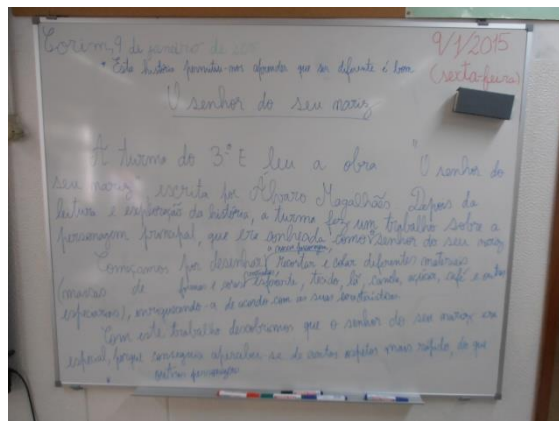 Corim, 9 de janeiro de 201
9/1/2015
• Esta história permitiu-nos aprender que ser diferente é bom
(sexta-feira)
O senhor do seu nariz
A turma do 3.º E leu a obra "O senhor do
seu nariz" escrita por Álvaro Magalhães. Depois da
leitura e exploração da história, a turma fez um trabalho sobre a
personagem principal, que era conhecida como senhor do seu nariz
Começamos por desenhar recortar e colar diferentes materiais
(massas de formas e cores tecido, lã, canela, açúcar, café e outras
especiarias), enriquecendo-a de acordo com as suas características.
Com este trabalho descobrimos que o senhor do seu nariz era
especial, porque conseguia aperceber-se de certos aspetos mais rápido, do que
outras personagens